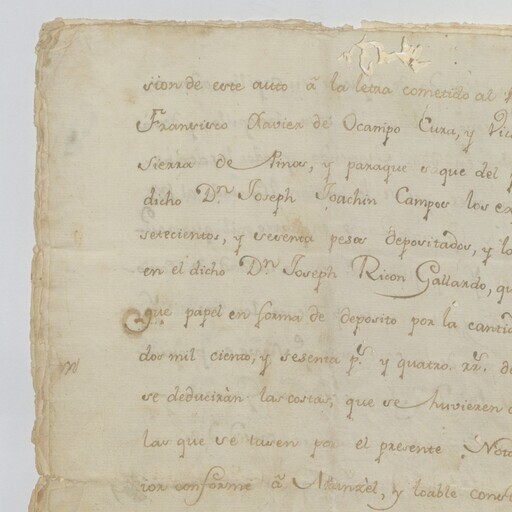 sion de este auto â la letra cometido al
Francisco Xavier de Ocampo Cura, y Vic
Sierra de Pinos, y paraque que del
dicho Dn. Joseph Joachin Campos los ex
setecientos, y sesenta pesos depositados, y lo
en el dicho Dn. Joseph Ricon Gallardo, qu
gue papel en forma de deposito por la canti
dos mil ciento, y sesenta ps. y quatro rrs. de
se deduciràn las costas, que se huvieren
las que se tasen por el presente Noto
rior conforme â Aranzèl, y loable cons